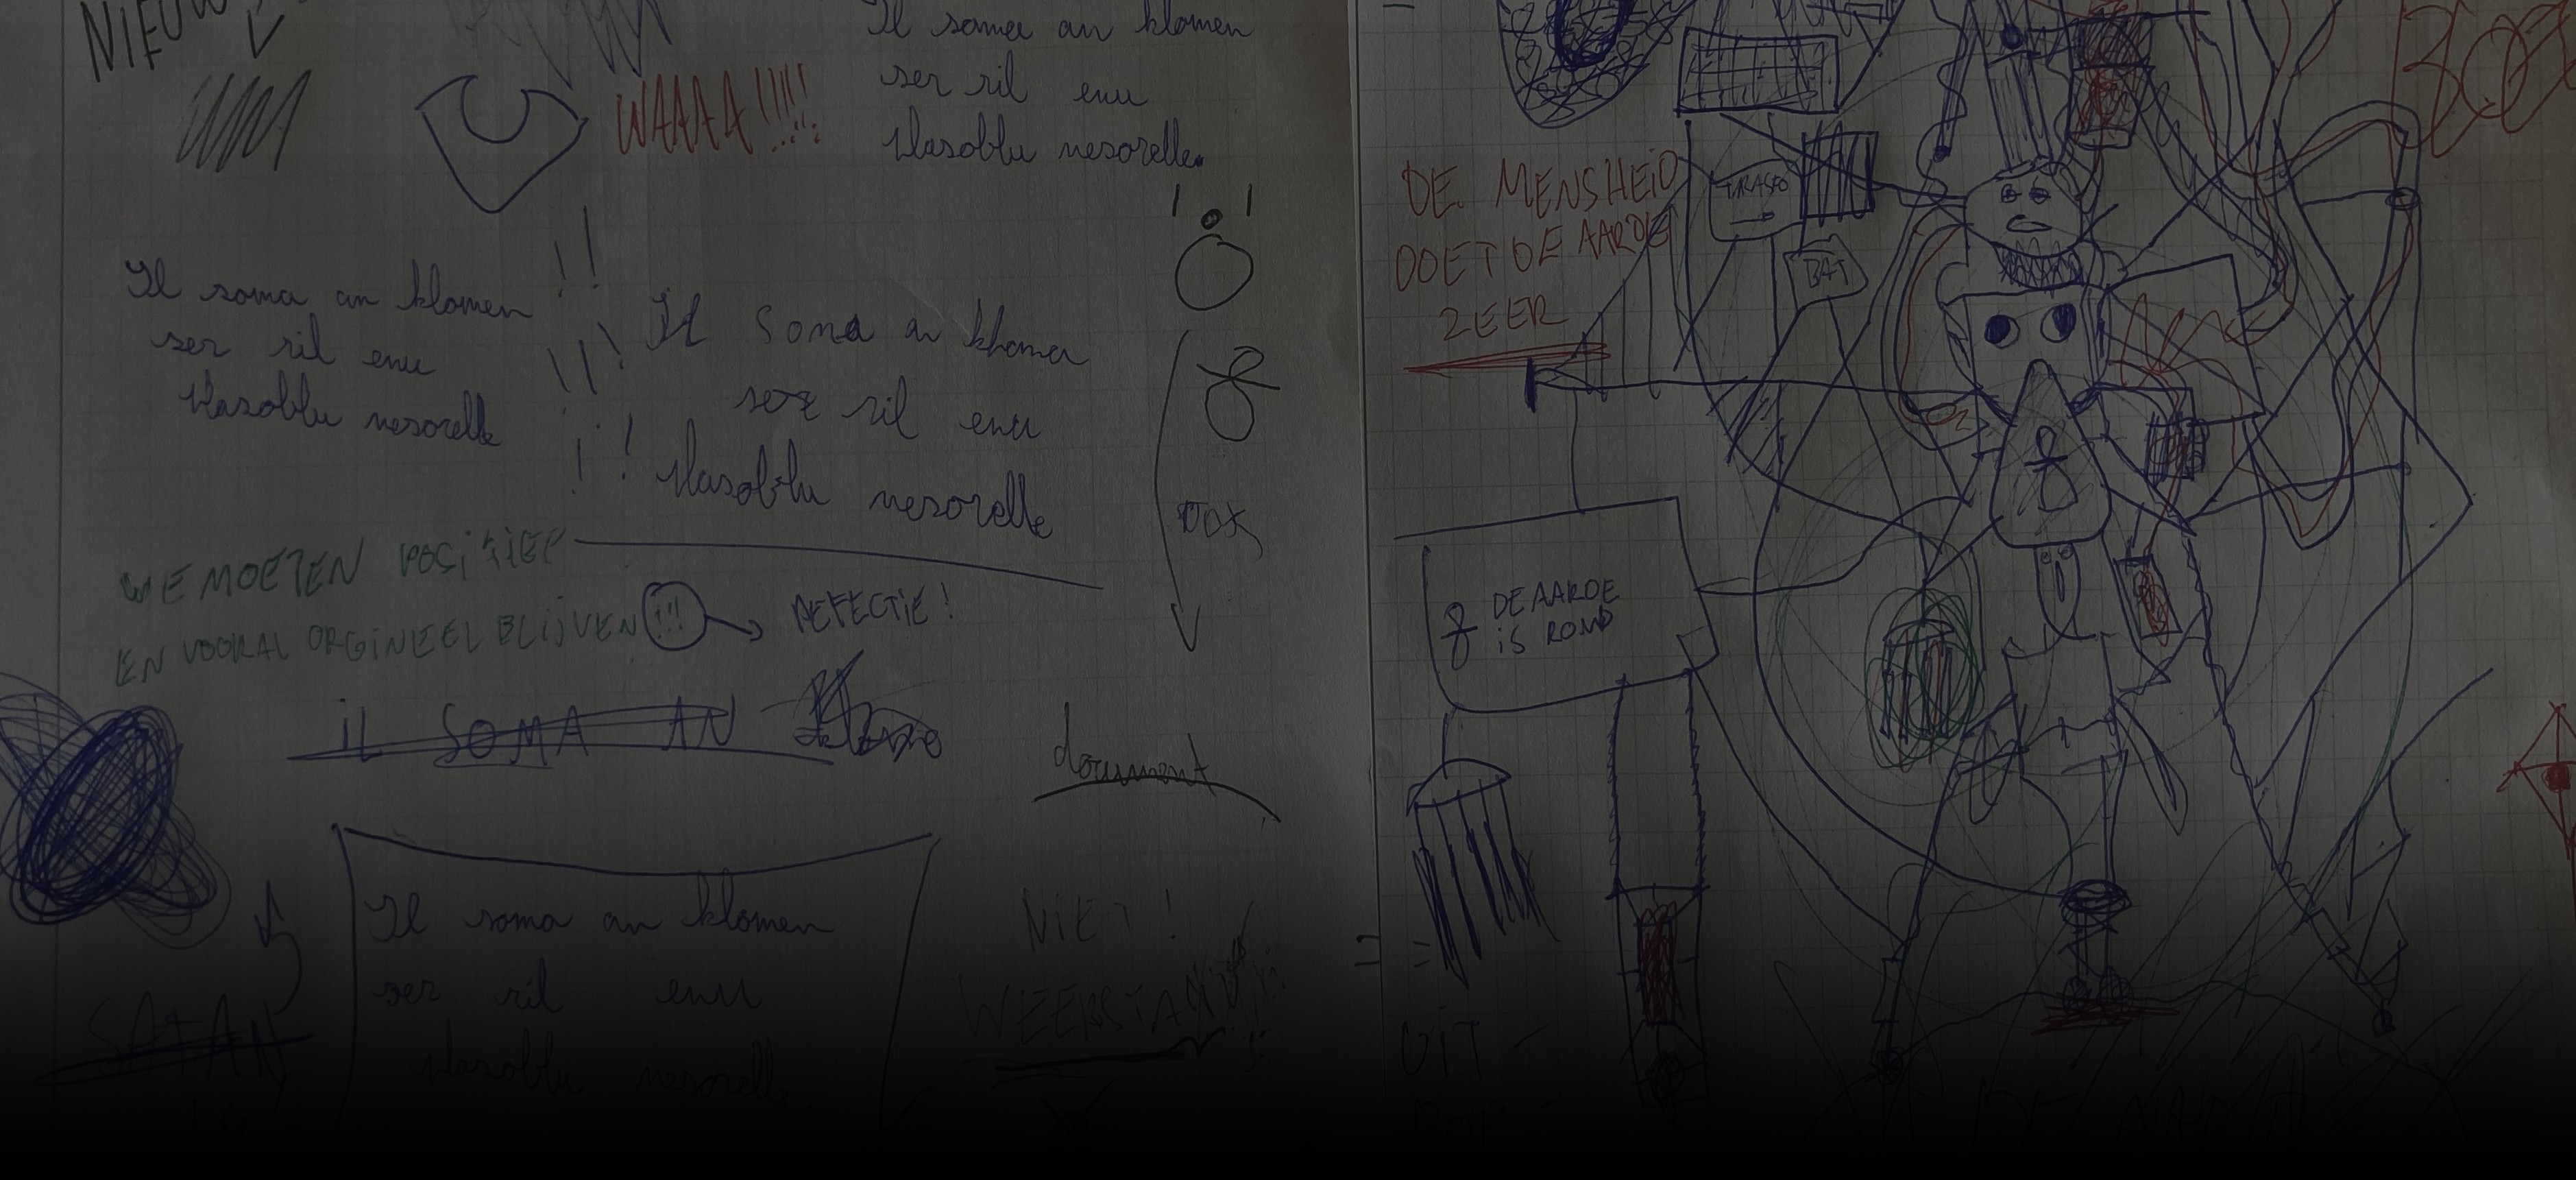 NIEUW
Il soma an klomen
ser ril enu
Hasoblu nesorelle
WAAAA!!!!!
Il soma an klomen
ser ril enu
Hasoblu nesorelle
!!
!!!
!!
Il soma an khoma
ser ril enu
Hasoblu nesorelle
OOK
WE MOETEN POSITIEF
EN VOORAL ORGINEEL BLIJVEN !!!
PEFECTIE!
IL SOMA AN
document
SATAN
Il soma an klomen
ser ril enu
Hasoblu nesorelle
NIET!
DE MENSHEID
DOET DE AARDE
ZEER
BAT
DE AARDE
IS ROND
UIT-